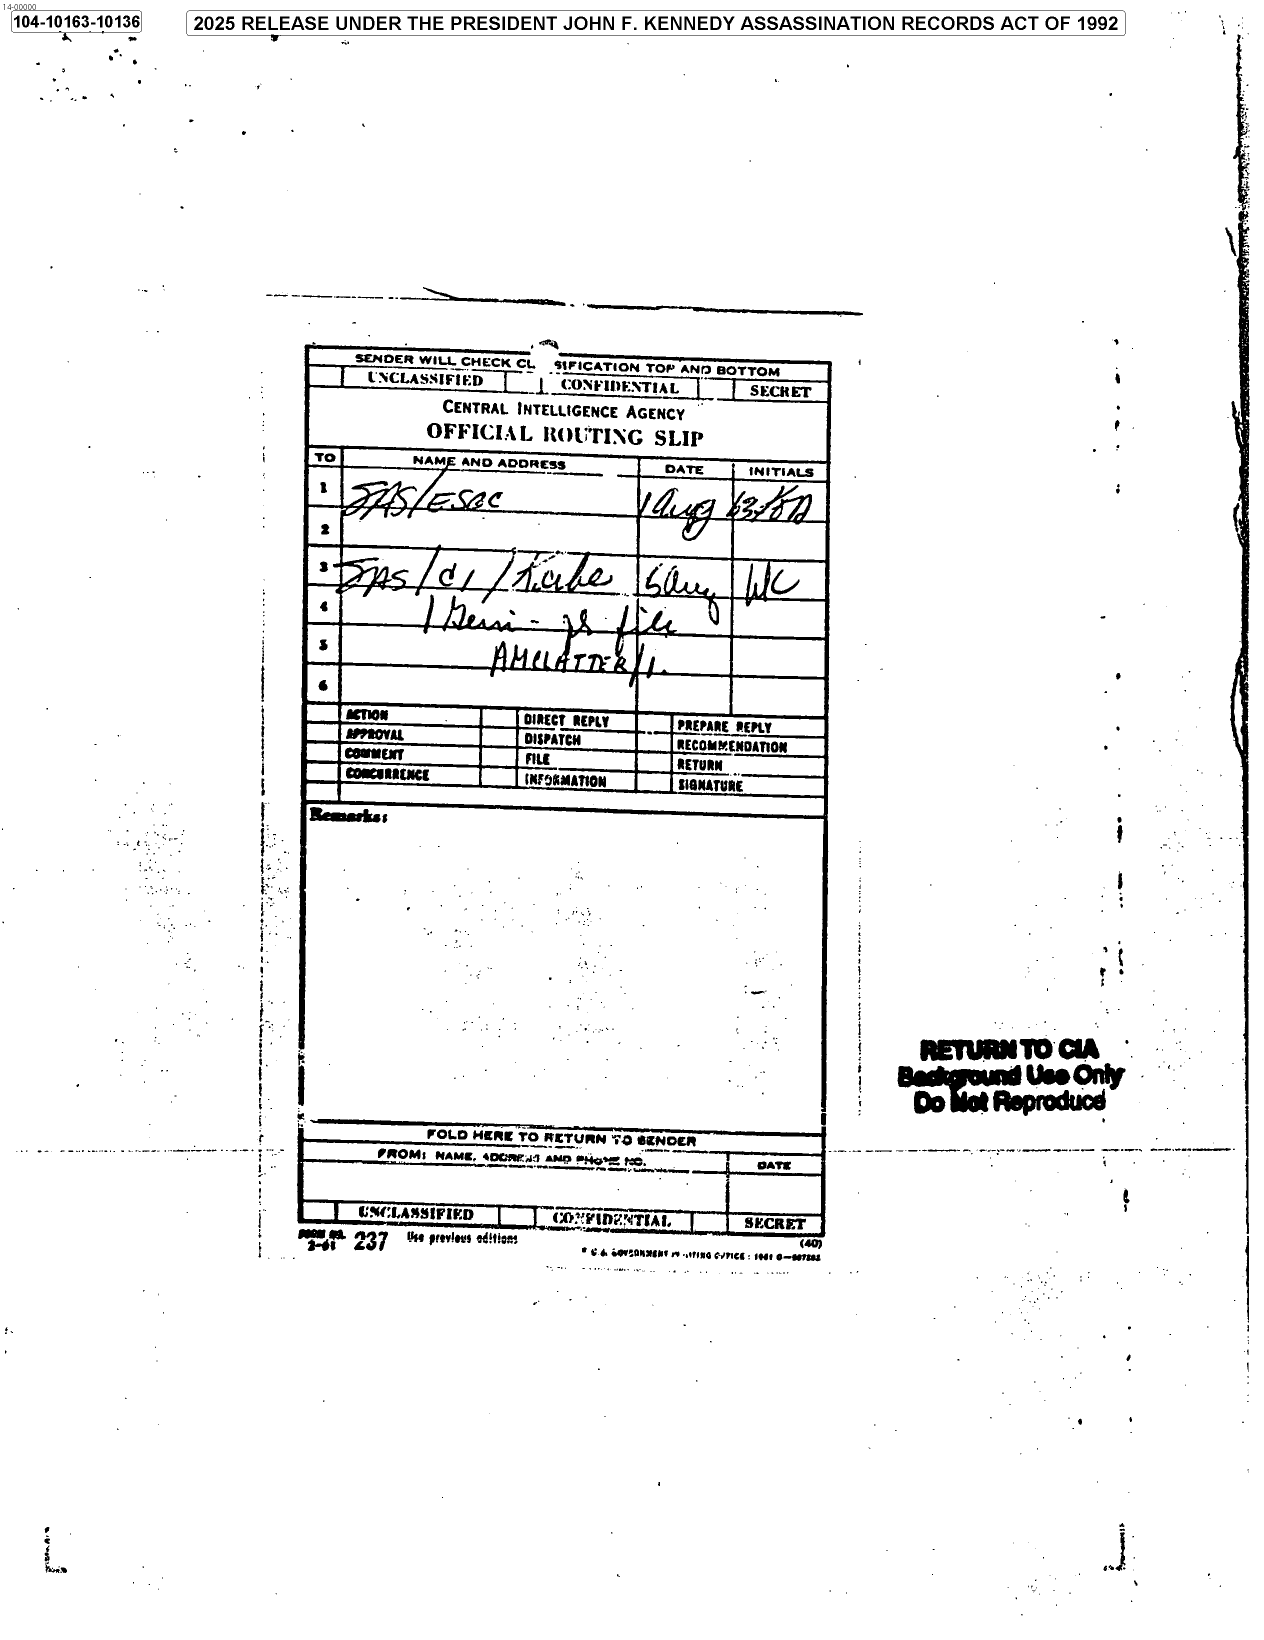 14-00000
104-10163-10136
2025 RELEASE UNDER THE PRESIDENT JOHN F. KENNEDY ASSASSINATION RECORDS ACT OF 1992
SENDER WILL CHECK CL SIFICATION TOP AND BOTTOM
UNCLASSIFIED CONFIDENTIAL SECRET
CENTRAL INTELLIGENCE AGENCY
OFFICIAL ROUTING SLIP
TO NAME AND ADDRESS DATE INITIALS
1 SAS/ESEC 1 Aug 63
2
3 SAS/CI/ 5 Aug
4 file
5 AMCLATTER/1.
6
ACTION DIRECT REPLY PREPARE REPLY
APPROVAL DISPATCH RECOMMENDATION
COMMENT FILE RETURN
CONCURRENCE INFORMATION SIGNATURE
Remarks:
RETURN TO CIA
Background Use Only
Do Not Reproduce
FOLD HERE TO RETURN TO SENDER
FROM: NAME, ADDRESS AND PHONE NO. DATE
UNCLASSIFIED CONFIDENTIAL SECRET
FORM NO. 2-61 237 Use previous editions (40)
* U.S. GOVERNMENT PRINTING OFFICE : 1961 O—